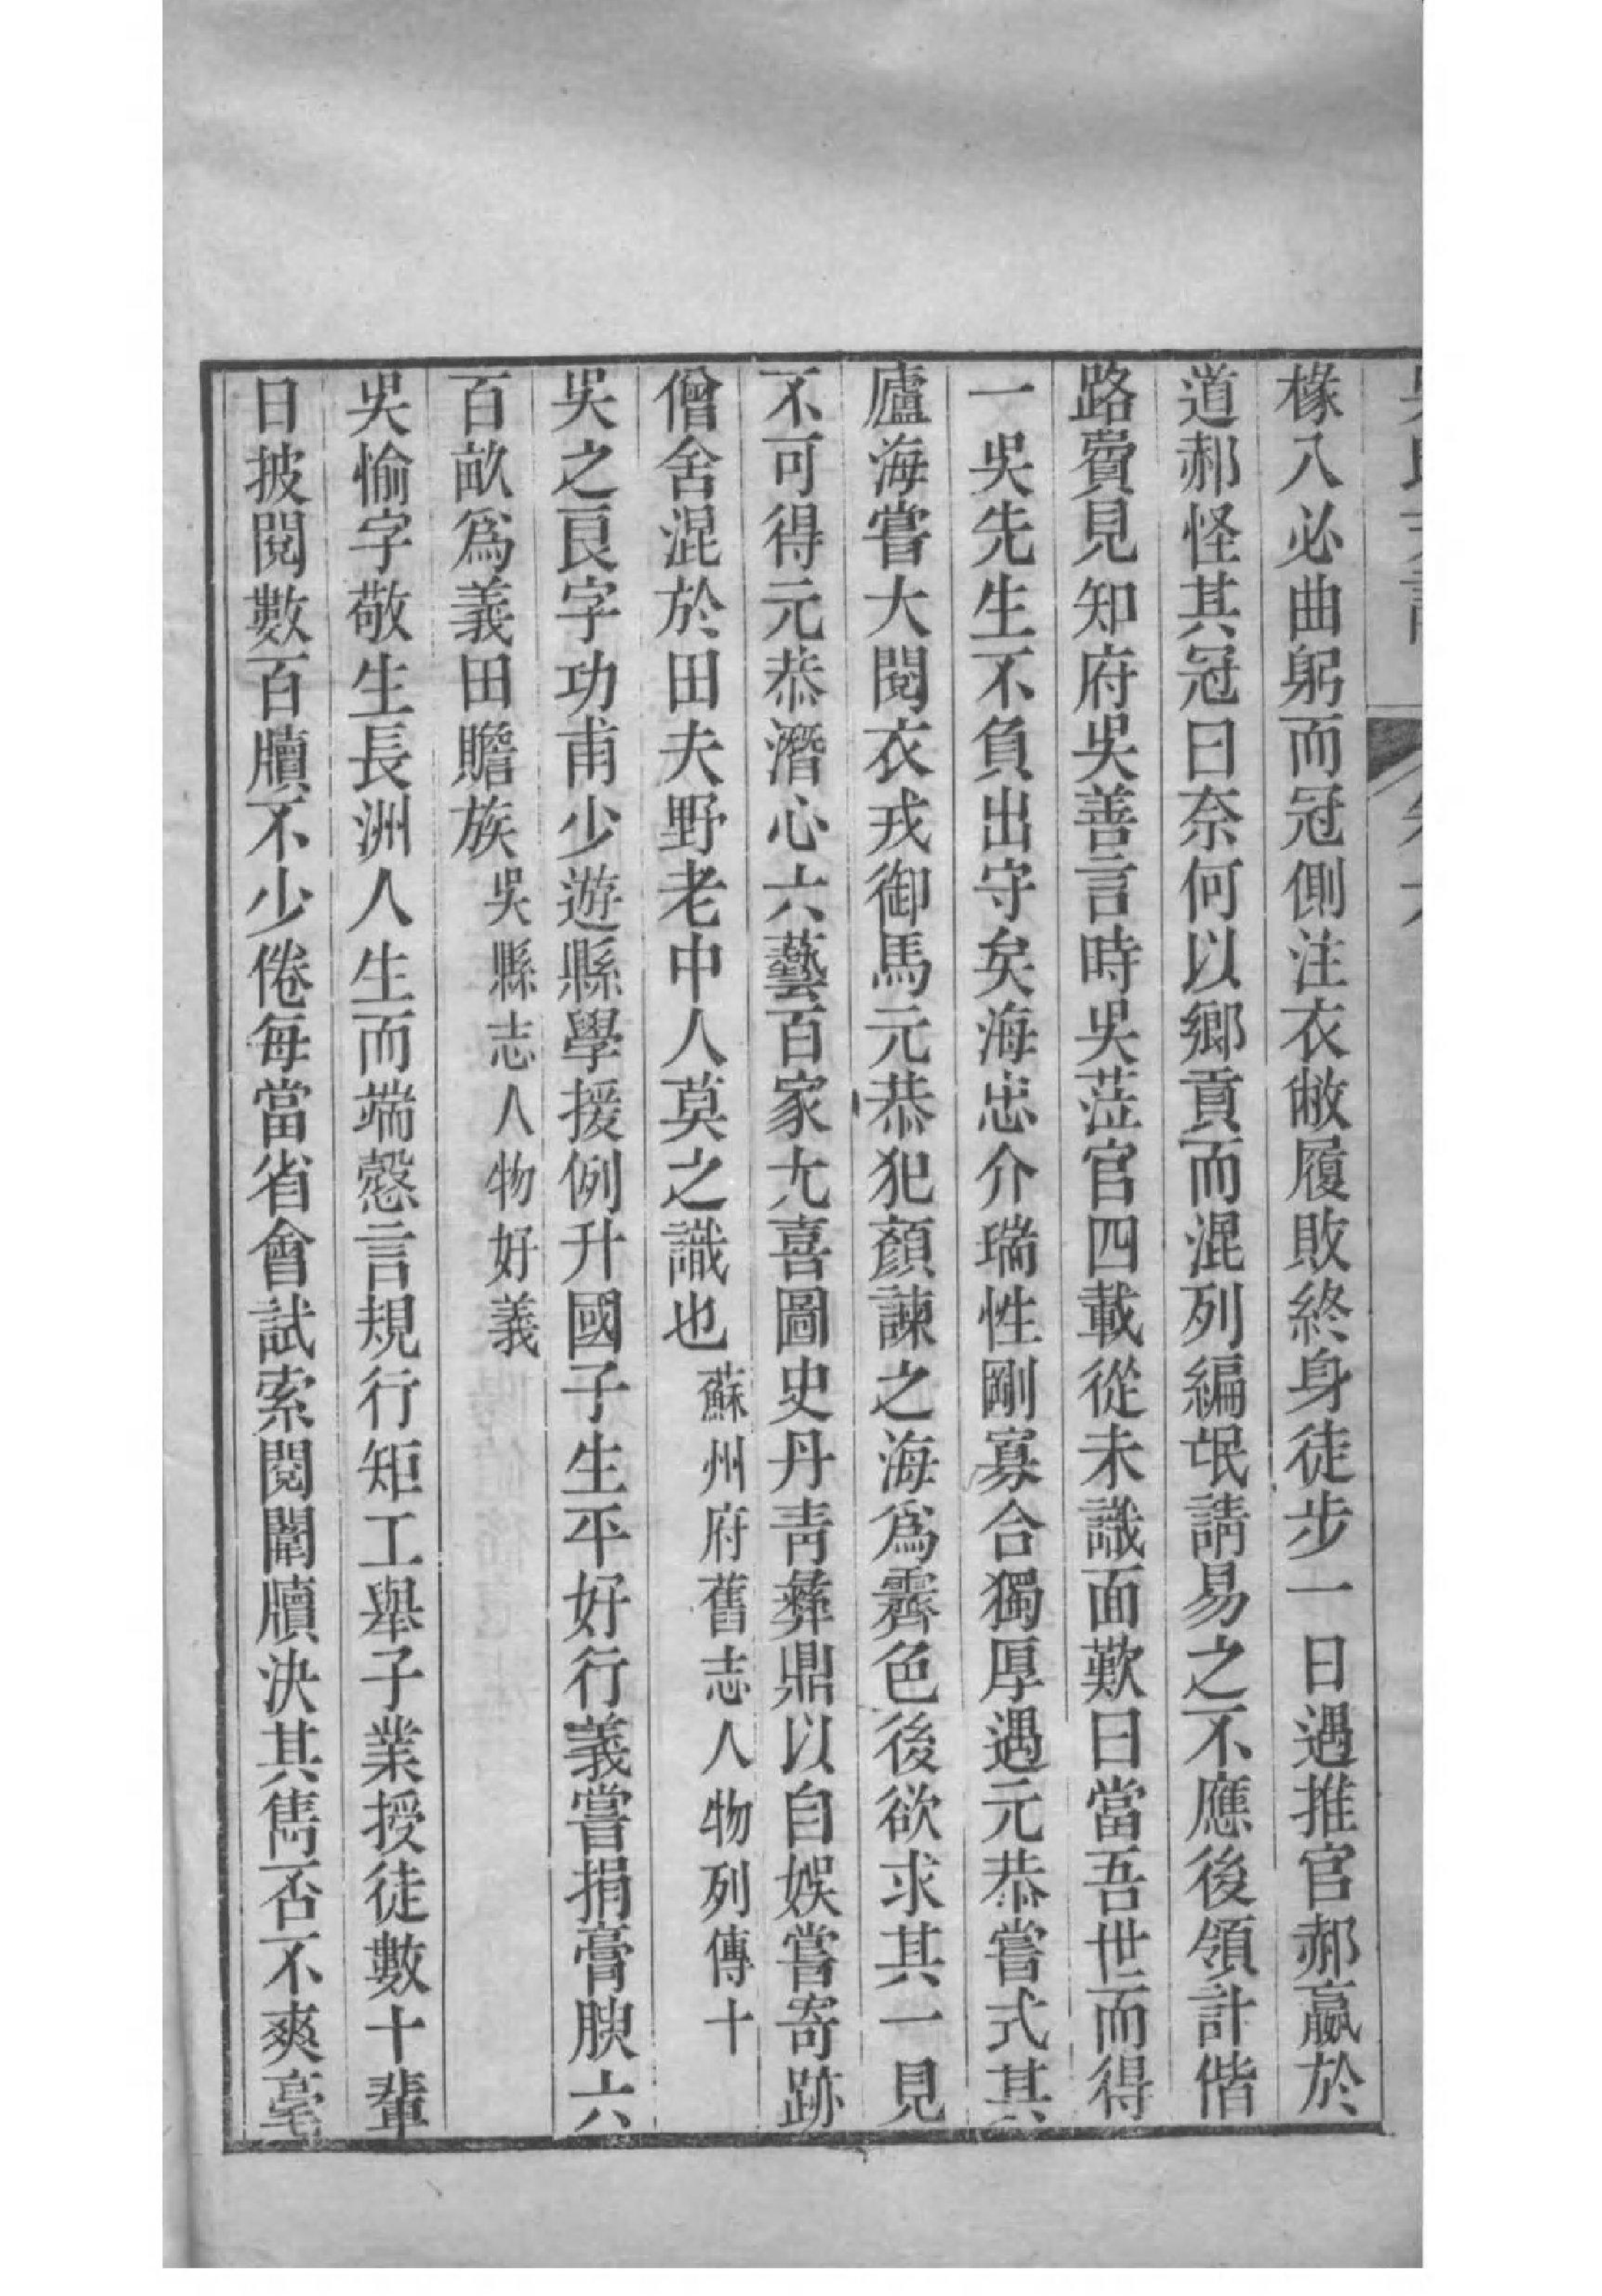 椽入必曲躬而冠側注衣敝履敗終身徒步一日遇推官郝嬴於
道郝怪其冠曰奈何以鄉貢而混列編氓請易之不應後領計偕
路費見知府吳善言時吳蒞官四載從未識面歎曰當吾世而得
一吳先生不負出守矣海忠介瑞性剛寡合獨厚遇元恭嘗式其
廬海嘗大閱衣戎御馬元恭犯顏諫之海爲霽色後欲求其一見
不可得元恭潛心六藝百家尤喜圖史丹青彝鼎以自娛嘗寄跡
僧舍混於田夫野老中人莫之識也蘇州府舊志人物列傳十
吳之良字功甫少遊縣學援例升國子生平好行義嘗捐膏腴六
百畝爲義田贍族吳縣志人物好義
吳愉字敬生長洲人生而端慤言規行矩工舉子業授徒數十輩
日披閱數百牘不少倦每當省會試索閱闈牘決其雋否不爽毫